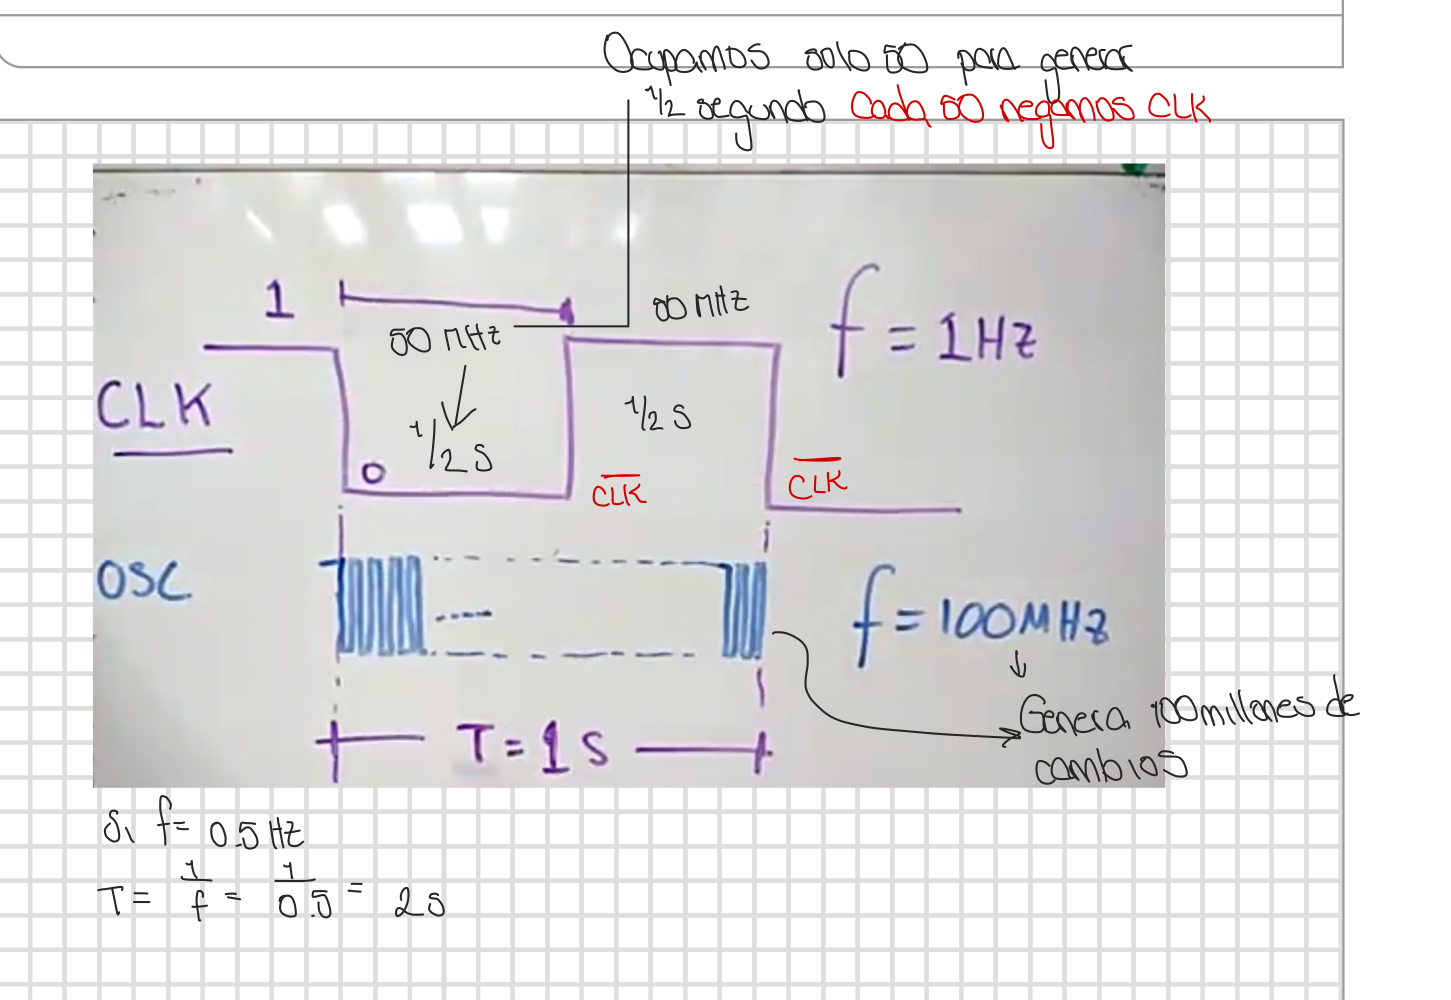 Ocupamos solo 50 para generar
1/2 segundo Cada 50 negamos CLK
1
50 MHz
50 MHz
f = 1Hz
CLK
1/2 s
1/2 s
0
CLK
CLK
OSC
f = 100MHz
Genera 100 millones de
cambios
T = 1 s
Si f = 0.5 Hz
T = 1/f = 1/0.5 = 2s